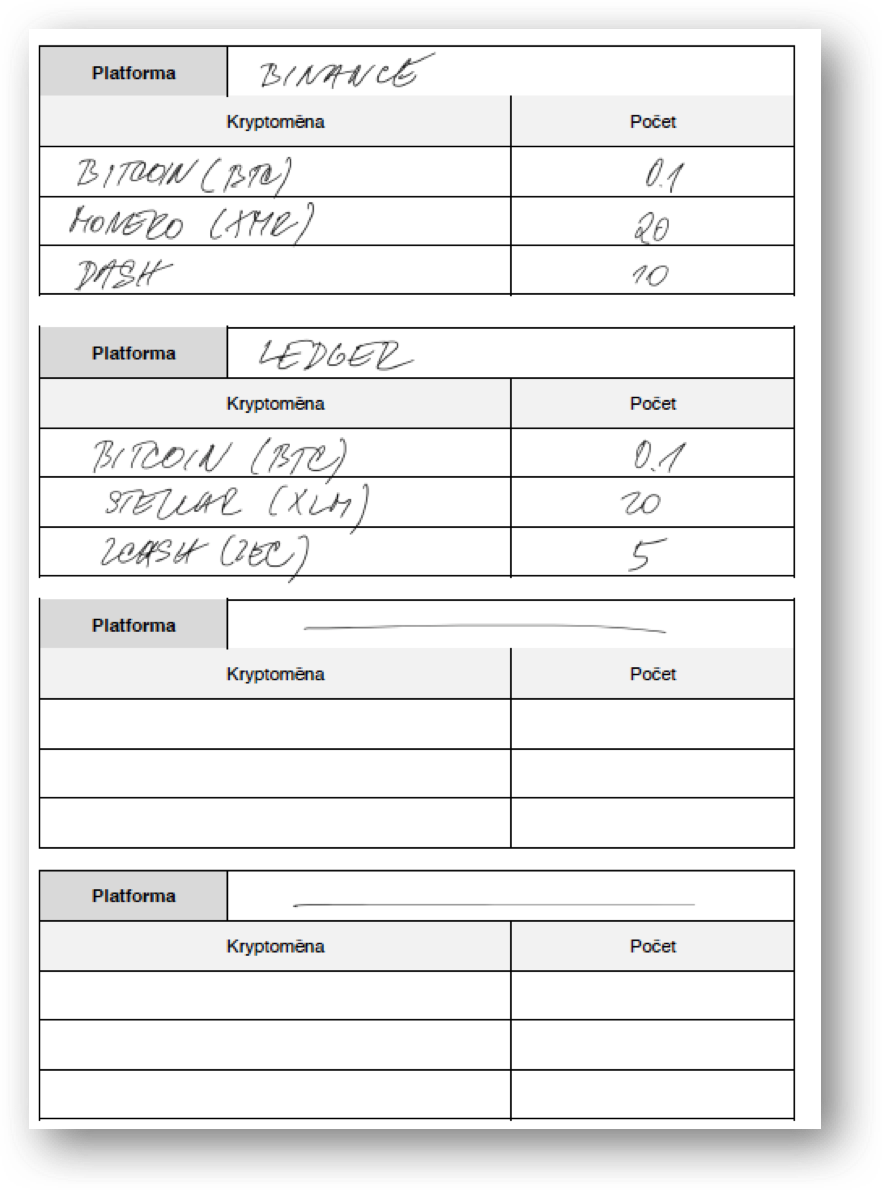 Platforma BINANCE
Kryptoměna Počet
BITCOIN (BTC) 0.1
MONERO (XMR) 20
DASH 10
Platforma LEDGER
Kryptoměna Počet
BITCOIN (BTC) 0.1
STELLAR (XLM) 20
ZCASH (ZEC) 5
Platforma
Kryptoměna Počet
Platforma
Kryptoměna Počet